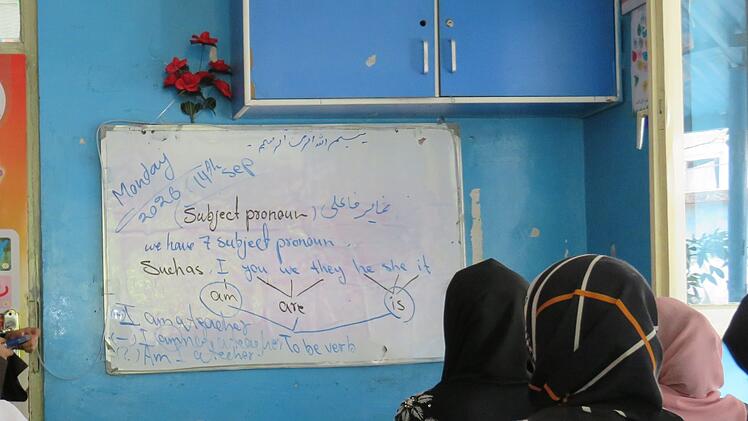 بسم الله الرحمن الرحیم
Monday 14th sep
2026
(Subject pronoun) ضمایر فاعلی
we have 7 subject pronoun.
Suchas. I you we they he she it
am are is
(+) I am a teacher
(-) I am not a teacher To be verb
(?) Am I a teacher